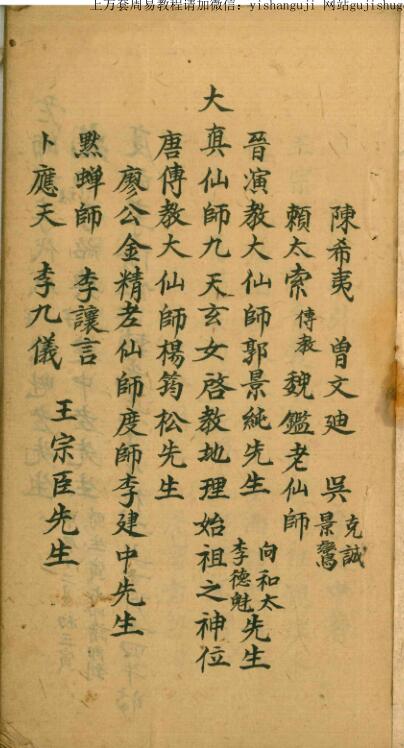 上万套周易教程请加微信：yishanguji 网站gujishuge
陳希夷 曾文廸 吳克誠景鸞
賴太索傳教魏鑑老仙師
晉演教大仙師郭景純先生 向和太李德魁先生
大真仙師九天玄女啓教地理始祖之神位
唐傳教大仙師楊筠松先生
廖公金精老仙師度師李建中先生
黙蝉師 李讓言
卜應天 李九儀
王宗臣先生